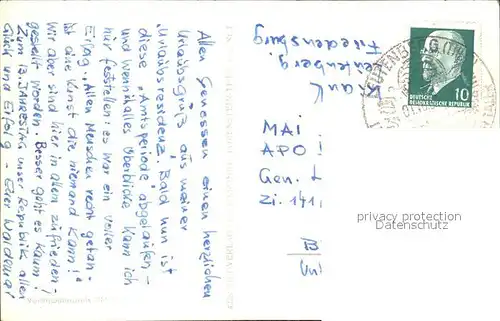 Allen Genossen einen herzlichen
Urlaubsgruß aus meiner
"Urlaubsresidenz". Bald nun ist
diese "Amtsperiode abgelaufen –
und wenn alles überblicke kann ich
nur feststellen: es war ein voller
Erfolg. "Allen Menschen recht getan –
ist eine Kunst die niemand kann!"
Wir aber sind hier in allem zufrieden-
gestellt worden. Besser geht es kaum!
Zum 13. JAHRESTAG unser Republik allen
Glück und Erfolg – Euer Waldemar
Krauß
Leutenberg
Friedensburg
LEUTENBERG (THÜR
10
DEUTSCHE
DEMOKRATISCHE REPUBLIK
MAI
APO
Gen.
Zi. 141
privacy protection
Datenschutz